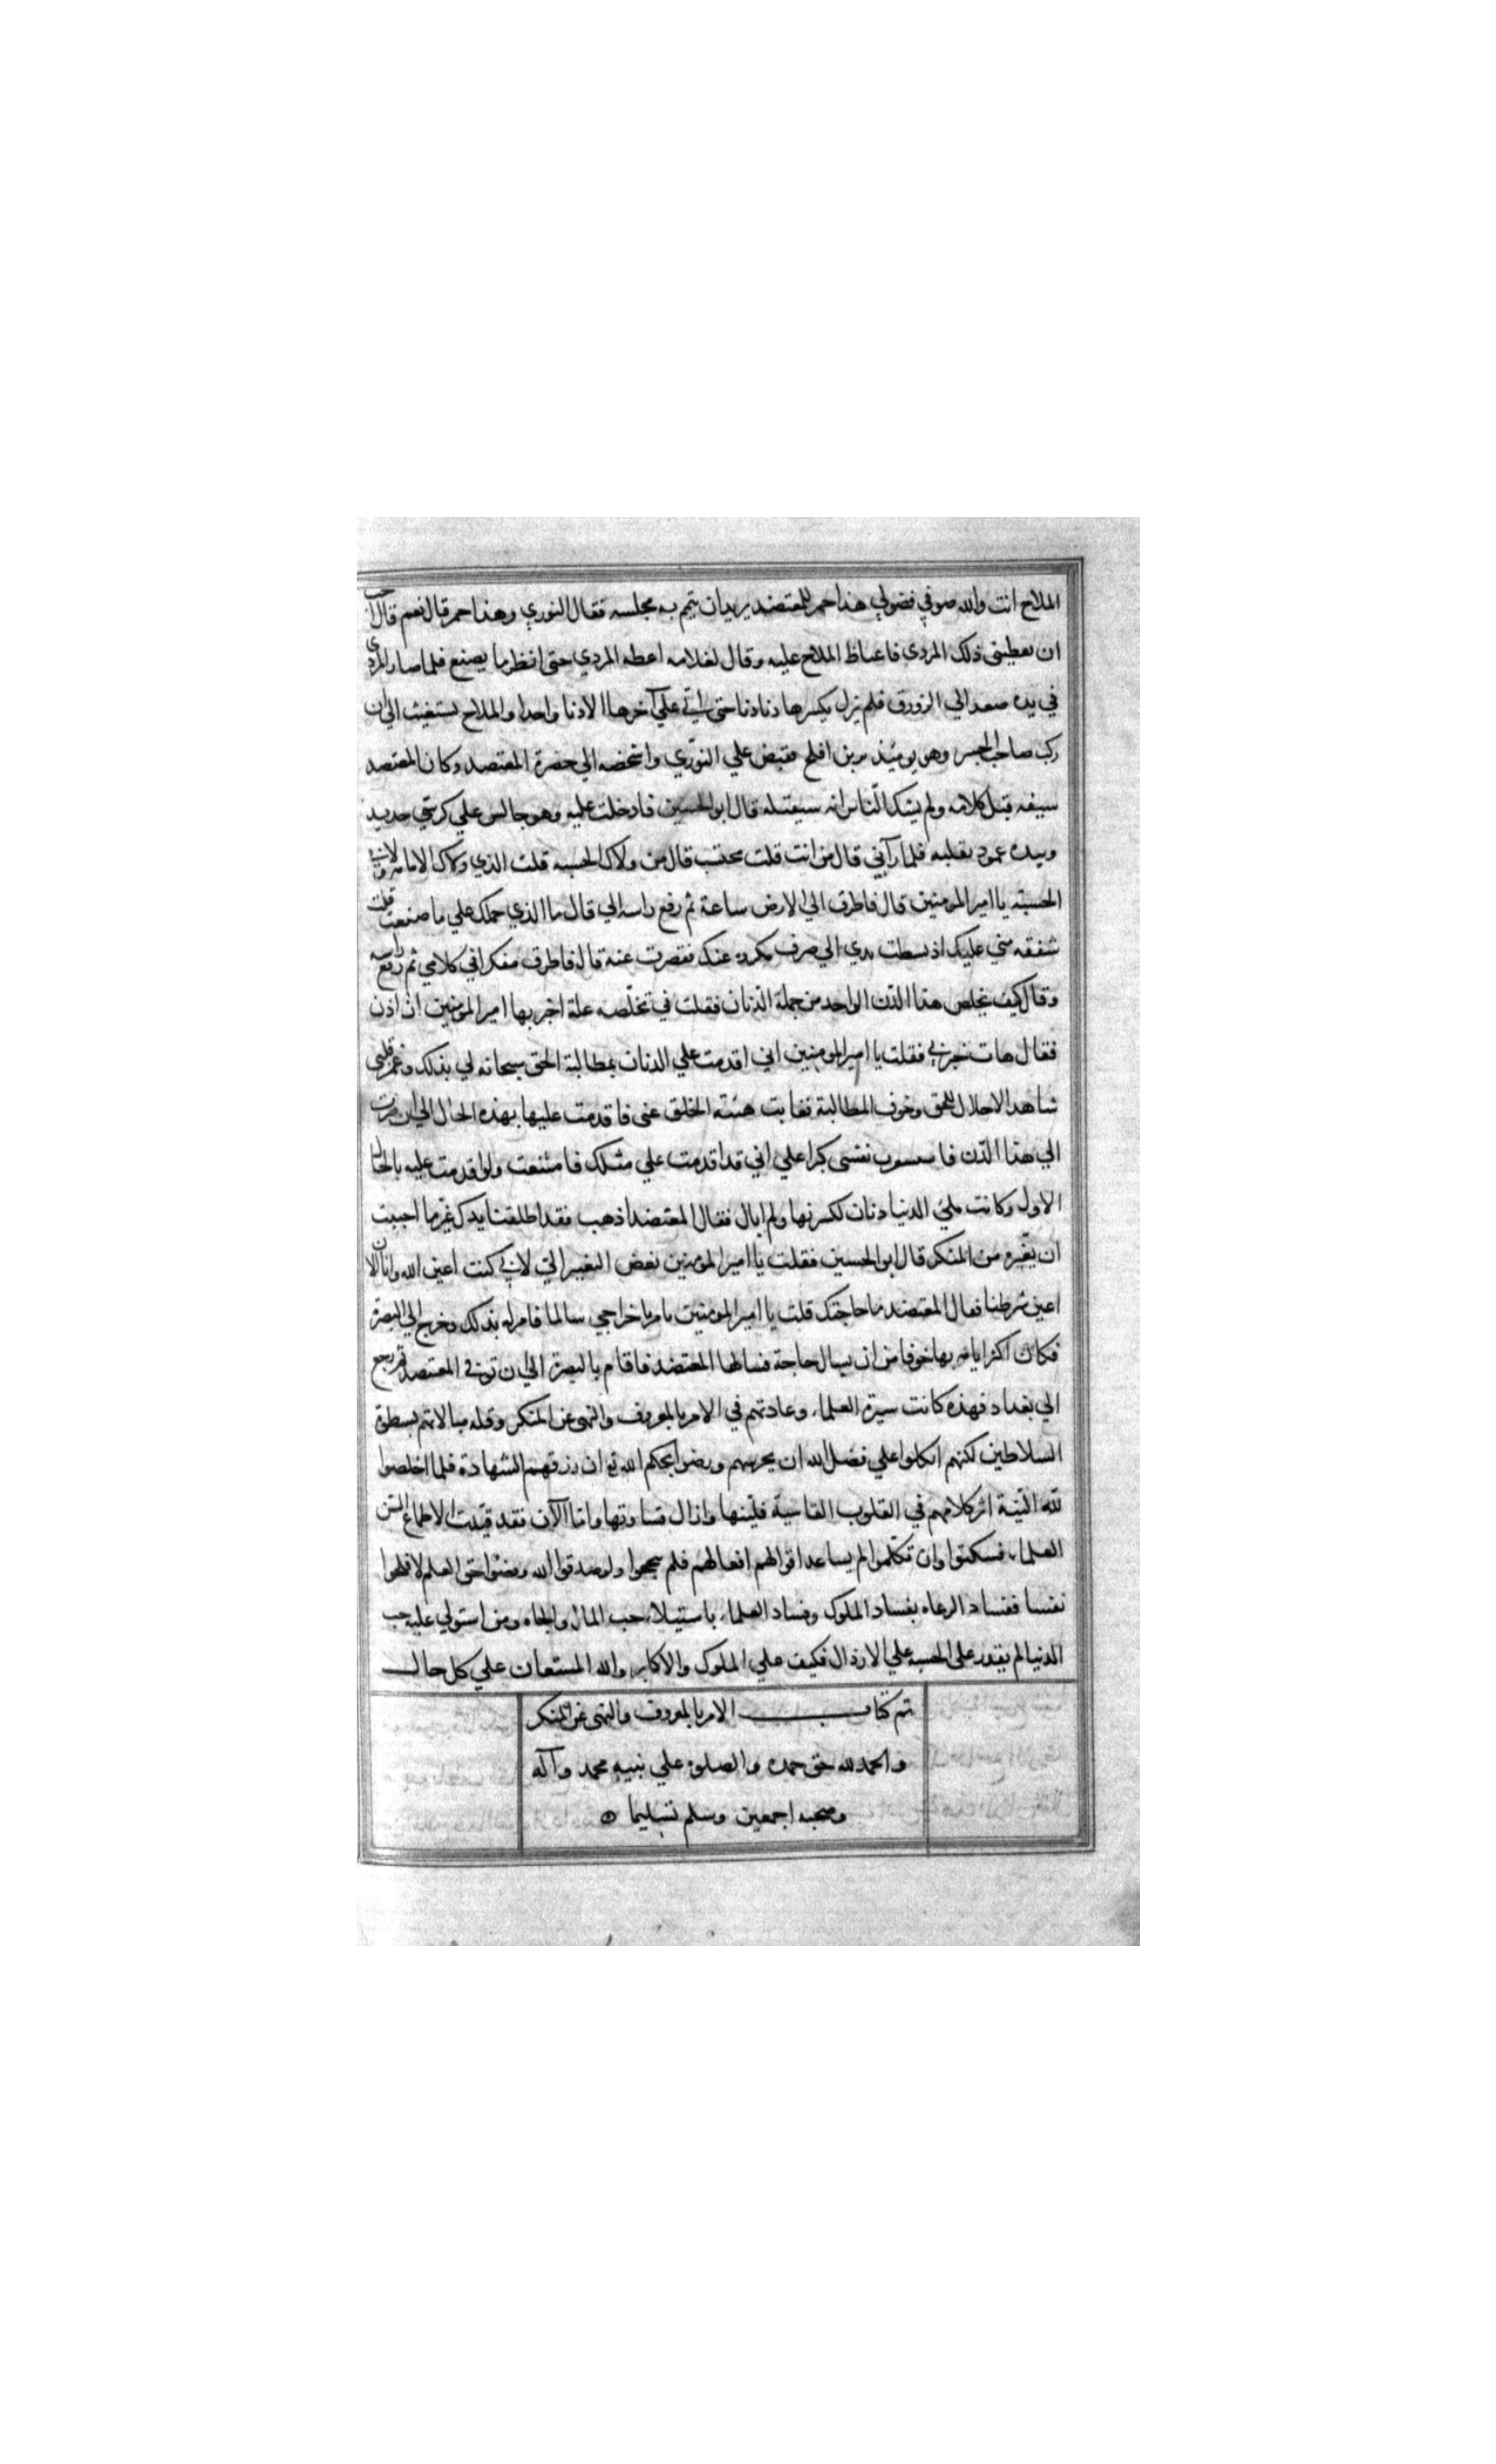 الملاح انت والله صوفي فضولي هذا خمر للمعتضد يريد ان يتمم به مجلسه فقال النوري وهذا خمر قال نعم قال احب
ان تعطيني ذلك المردي فاغتاظ الملاح عليه وقال لغلامه اعطه المردي حتى انظر ما يصنع فلما صار المردي
في يده صعد الي الزورق فلم يزل يكسرها دنا دنا حتى اتي علي آخرها الا دنا واحدا والملاح يستغيث الي ان
ركب صاحب الجسر وهو يومئذ بن افلح فقبض علي النوري واشخصه الي حضرة المعتضد وكان المعتضد
سيفه قبل كلامه ولم يشك الناس انه سيقتله قال ابو الحسين فادخلت عليه وهو جالس علي كرسي حديد
وبيده عمود يقلبه فلما رآني قال من انت قلت محتسب قال من ولاك الحسبه قلت الذي ولاك الامامه ولاني
الحسبة يا امير المومنين قال فاطرق الي الارض ساعة ثم رفع راسه الي قال ما الذي حملك علي ما صنعت قلت
شفقه مني عليك اذ بسطت يدي الي صرف مكروه عنك فقصرت عنه قال فاطرق مفكرا في كلامي ثم رفع راسه
وقال كيف تخلص هذا الدن الواحد من جملة الدنان فقلت في تخلصه علة اخبر بها امير المومنين ان اذن
فقال هات خبرني فقلت يا امير المومنين اني اقدمت علي الدنان بمطالبة الحق سبحانه لي بذلك وغمر قلبي
شاهد الاجلال للحق وخوف المطالبة فغابت هيئته الخلق عني فاقدمت عليها بهذه الحال الي ان صرت
الي هذا الدن نفسي كبرا علي اني قد اقدمت علي مثلك فامتنعت ولو اقدمت عليه بالحال
الاول وكانت ملئ الدنيا دنان لكسرتها ولم ابال فقال المعتضد اذهب فقد اطلقنا يدك غير ما احببت
ان يغيره من المنكر قال ابو الحسين فقلت يا امير المومنين نغص التغيير الي لاني كنت اعين الله وانا الان
اعين شرطنا فقال المعتضد ما حاجتك قلت يا امير المومنين يامر باخراجي سالما فامر له بذلك وخرج الي البصرة
فكان اكثر ايامه بها خوفا من ان يسال حاجة فسالها المعتضد فاقام بالبصرة الي ان توفي المعتضد ثم رجع
الي بغداد فهذه كانت سيرة العلماء وعادتهم في الامر بالمعروف والنهي عن المنكر وقله مبالاتهم بسطوة
السلاطين لكنهم اتكلوا علي فضل الله ان يحرسهم ورضوا بحكم الله تع ان رزقهم الشهادة فلما اخلصوا
لله النية اثر كلامهم في القلوب القاسية فلينها وازال قساوتها واما الآن فقد قيدت الاطماع السن
العلماء فسكتوا وان تكلموا لم يساعد اقوالهم افعالهم فلم ينجحوا ولو صدقوا الله حق العلم لافلحوا
نفسا ففساد الرعاه بفساد الملوك وفساد العلماء باستيلاء حب المال والجاه ومن استولي عليه حب
الدنيا لم يقدر علي الحسبه علي الارذال فكيف علي الملوك والاكابر والله المستعان علي كل حال
تم كتاب الامر بالمعروف والنهي عن المنكر
والحمد لله حق حمده والصلوة علي نبيه محمد وآله
وصحبه اجمعين وسلم تسليما